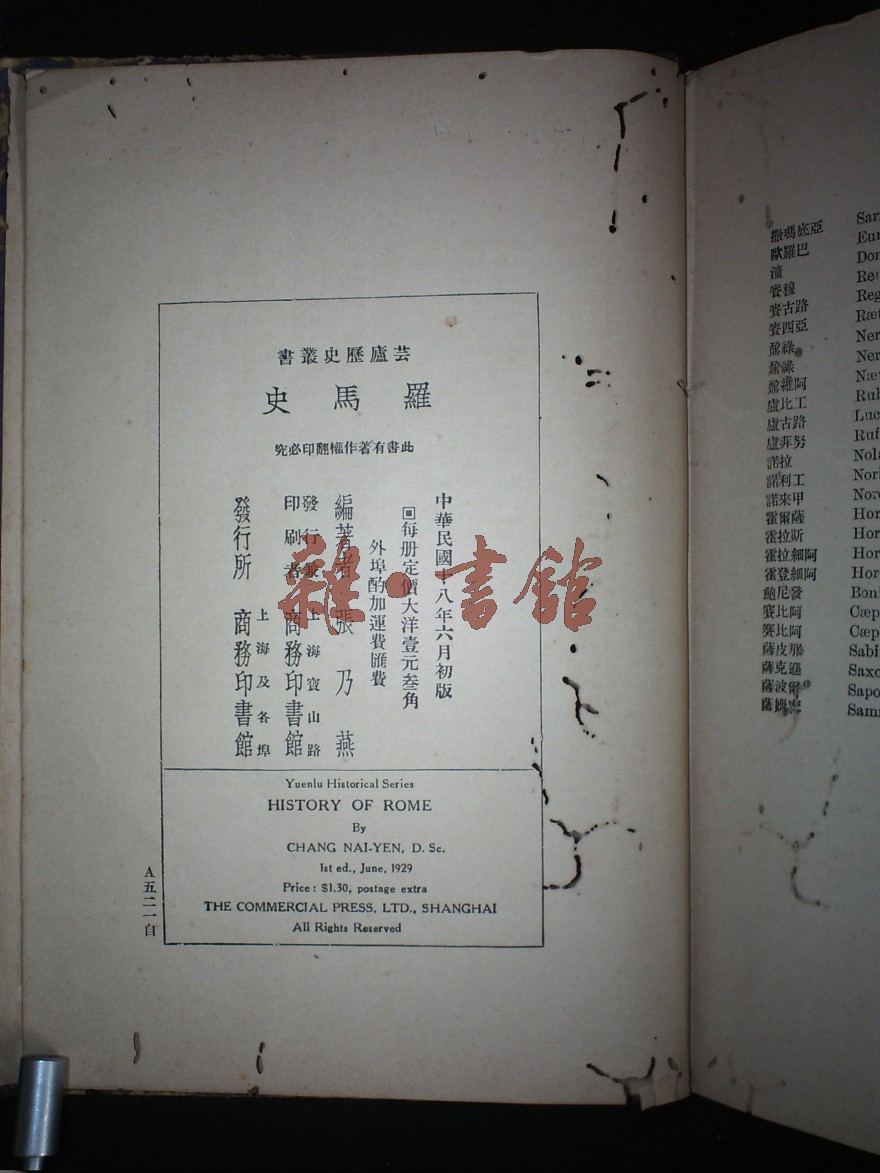 芸廬歷史叢書
羅馬史
此書有著作權翻印必究
中華民國十八年六月初版
回每册定價大洋壹元叁角
外埠酌加運費匯費
編著者 張乃燕
發行兼 上海寶山路
印刷者 商務印書館
發行所 上海及各埠
商務印書館
雜·書館
Yuenlu Historical Series
HISTORY OF ROME
By
CHANG NAI-YEN, D. Sc.
1st ed., June, 1929
Price: $1.30, postage extra
THE COMMERCIAL PRESS, LTD., SHANGHAI
All Rights Reserved
A五二一自
撒瑪底亞 Sar
歐羅巴 Eur
潼 Don
賚穆 Re
賚古路 Reg
賚西亞 Ræt
鼐祿 Ner
鼐祿 Ner
鼐維阿 Næv
盧比工 Rub
盧古路 Luc
盧弗努 Ruf
諾拉 Nola
諾利工 Nori
諾來甲 Nore
霍爾薩 Hor
霍拉斯 Hor
霍拉細阿 Hor
霍登細阿 Hor
鮑尼發 Boni
賽比阿 Cæp
比阿 Cæp
薩皮那 Sabi
薩克遜 Saxo
薩波爾 Sapo
薩姆 Sam